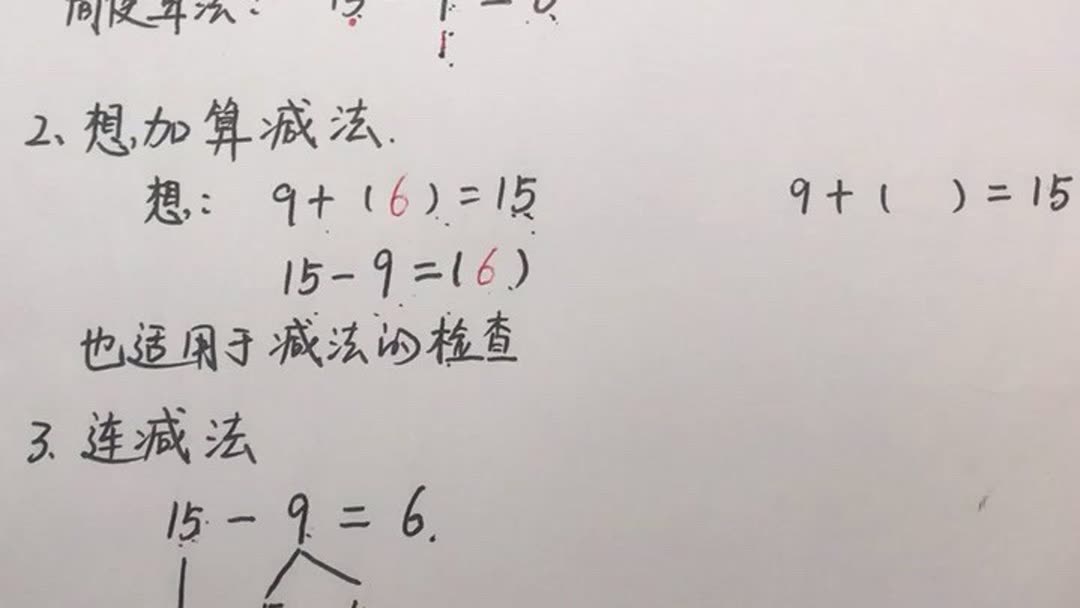 简便算法:
2、想加算减法.
想: 9+(6)=15 9+( )=15
15-9=(6)
也适用于减法的检查
3.连减法
15-9=6.